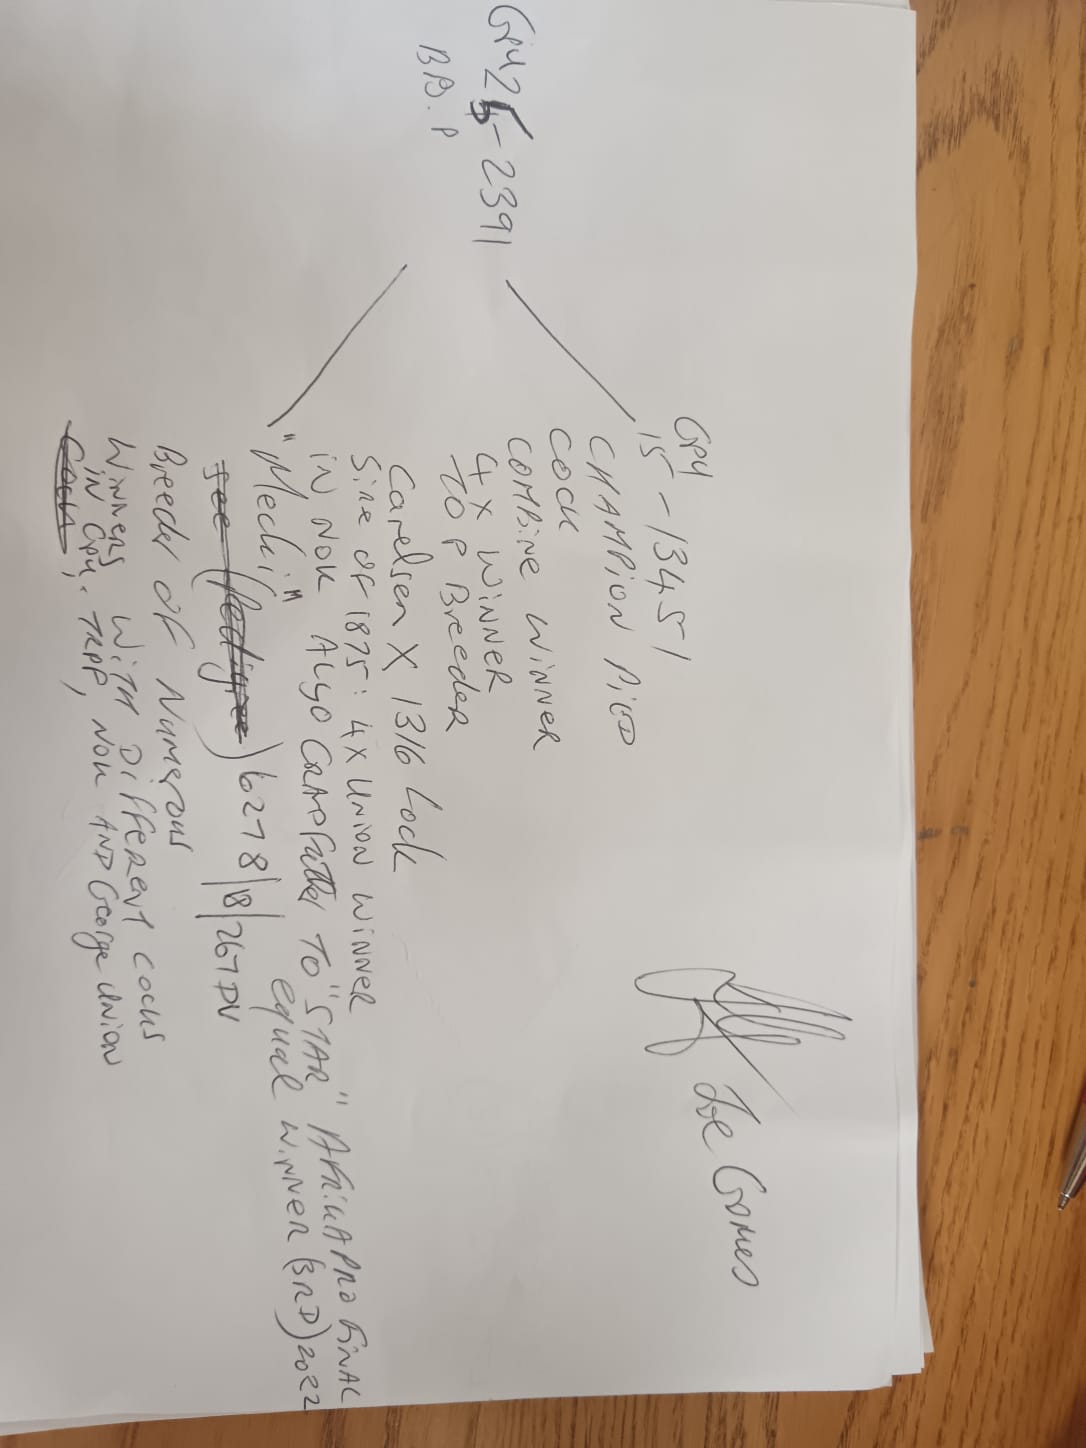 GPU25-2391
BB.P
GPU
15-13451
CHAMPION PIED
COCK
COMBINE WINNER
4X WINNER
TOP Breeder
Carelsen X 1316 Lock
Sire OF 1875: 4X UNION WINNER
IN NOK ALSO GRANDFATHER TO "STAR" AFRICAPRO FINAL
equal WINNER (3RD) 2022
"Mecki"
See (Pedigree) 6278/18/267DV
Breeder OF Numerous
Winners WITH DIFFERENT COCKS
IN GPU, TRPF, NOK AND George UNION
COCK,
Joe Gomes